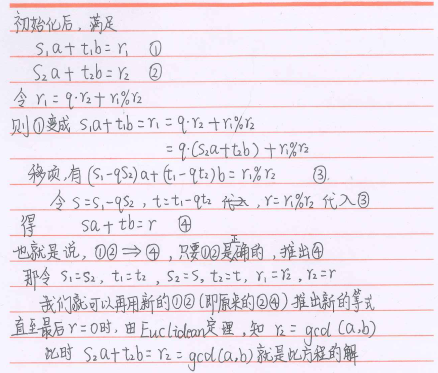 初始化后，满足
s₁a + t₁b = r₁ ①
s₂a + t₂b = r₂ ②
令 r₁ = q·r₂ + r₁%r₂
则①变成 s₁a + t₁b = r₁ = q·r₂ + r₁%r₂
= q·(s₂a + t₂b) + r₁%r₂
移项，有 (s₁-qs₂)a + (t₁-qt₂)b = r₁%r₂ ③
令 s = s₁-qs₂, t = t₁-qt₂, r = r₁%r₂ 代入③
得 sa + tb = r ④
也就是说，①② ⇒ ④，只要①②是正确的，推出④
那令 s₁=s₂, t₁=t₂, s₂=s, t₂=t, r₁=r₂, r₂=r
我们就可以再用新的①②(即原来的②④)推出新的等式
直至最后 r=0时，由Euclidean定理，知 r₂ = gcd(a,b)
此时 s₂a + t₂b = r₂ = gcd(a,b) 就是此方程的解